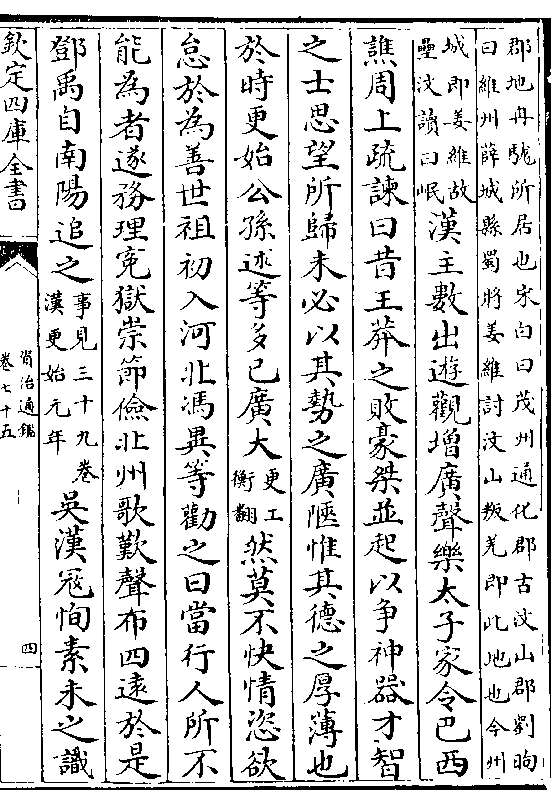 郡地冉駹所居也宋白曰茂州通化郡古汶山郡劉昫
曰維州薛城縣蜀將姜維討汶山叛羌即此地也今州
城即姜維故
壘汶讀曰岷
漢主數出遊觀增廣聲樂太子家令巴西
譙周上疏諫曰昔王莽之敗豪桀並起以争神器才智
之士思望所歸未必以其勢之廣陿惟其德之厚薄也
於時更始公孫述等多已廣大
更工
衡翻
然莫不快情恣欲
怠於為善世祖初入河北馮異等勸之曰當行人所不
能為者遂務理寃獄崇節儉北州歌歎聲布四遠於是
鄧禹自南陽追之
事見三十九卷
漢更始元年
吳漢冦恂素未之識
欽定四庫全書
資治通鑑
卷七十五
四